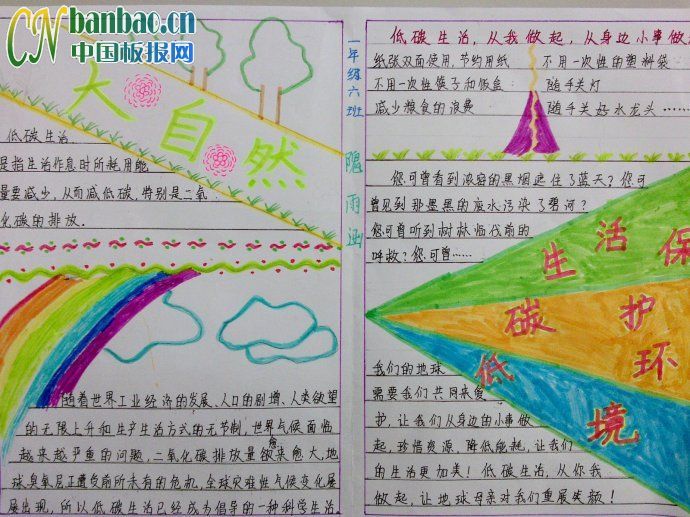 CN banbao.cn
中国板报网
大自然
低碳生活
是指生活作息时所耗用能
量要减少，从而减低碳，特别是二氧
化碳的排放．
随着世界工业经济的发展、人口的剧增、人类欲望
的无限上升和生产生活方式的无节制，世界气候面临
越来越严重的问题，二氧化碳排放量愈来愈大，地
球臭氧层正遭受前所未有的危机，全球灾难性气候变化屡
屡出现，所以低碳生活已经成为倡导的一种科学生活
一年级六班
隗雨涵
低碳生活，从我做起，从身边小事做起
纸张双面使用，节约用纸 不用一次性的塑料袋
不用一次性筷子和饭盒 随手关灯
减少粮食的浪费 随手关好水龙头……
您可曾看到浓密的黑烟遮住了蓝天？您可
曾见到那墨黑的废水污染了碧河？
您可曾听到树林临伐前的
呼救？您可曾……
低碳生活
保护环境
我们的地球
需要我们共同来爱
护，让我们从身边的小事做
起，珍惜资源，降低能耗，让我们
的生活更加美！低碳生活，从你我
做起，让地球母亲对我们重展笑颜！